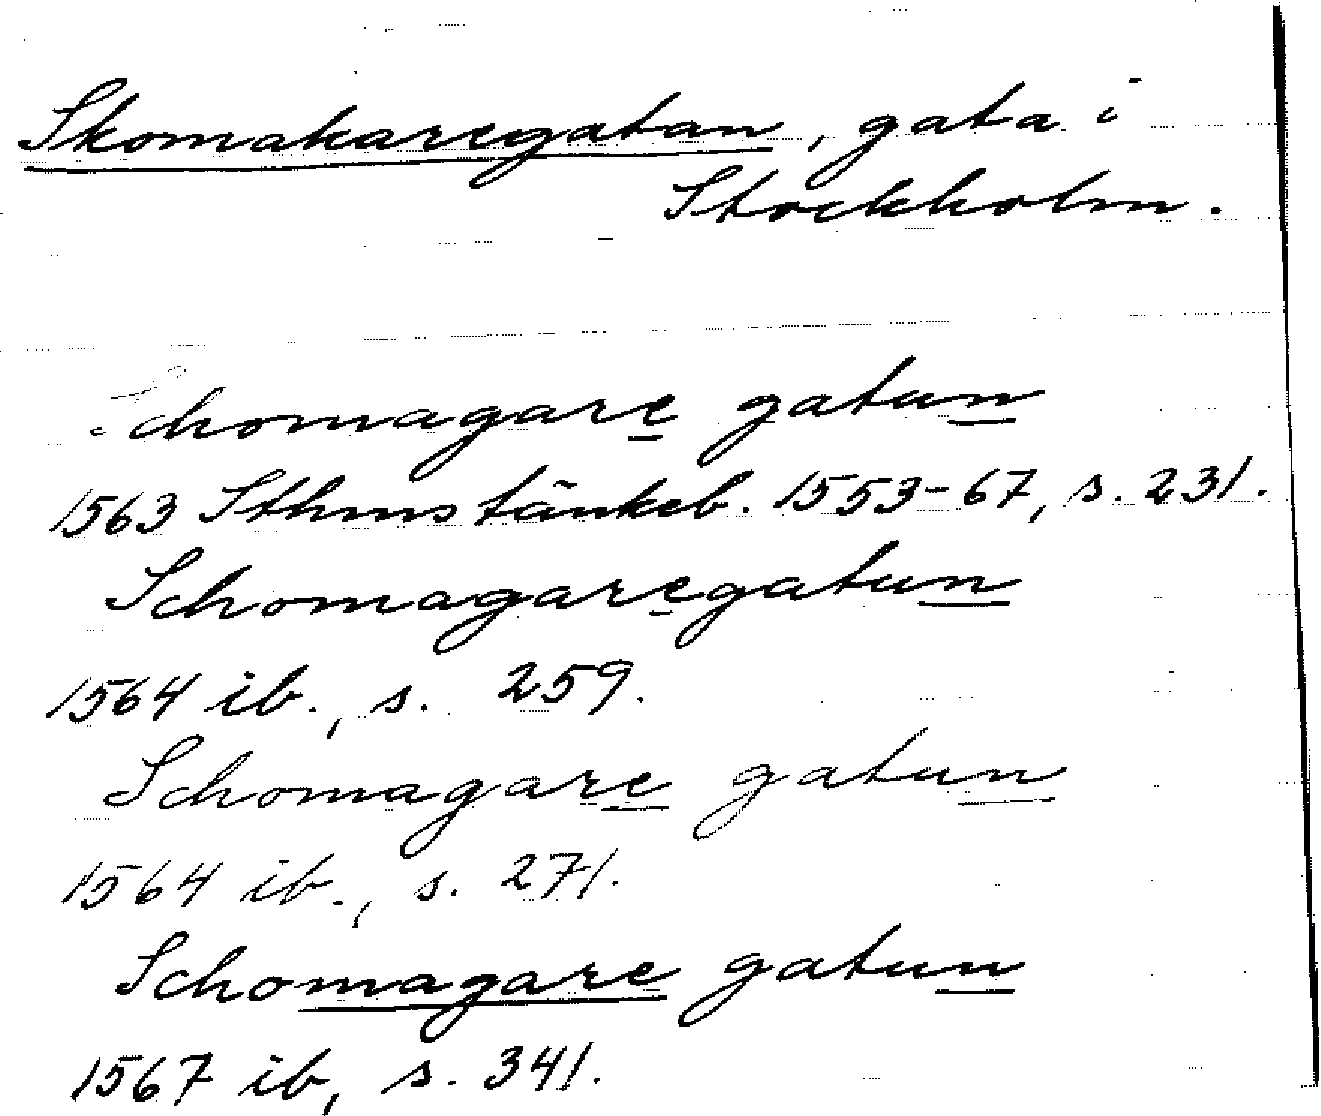 Skomakaregatan, gata i
Stockholm.
Schomagare gatun
1563 Sthms tänkeb. 1553-67, s. 231.
Schomagaregatun
1564 ib., s. 259.
Schomagare gatun
1564 ib., s. 271.
Schomagare gatun
1567 ib, s. 341.